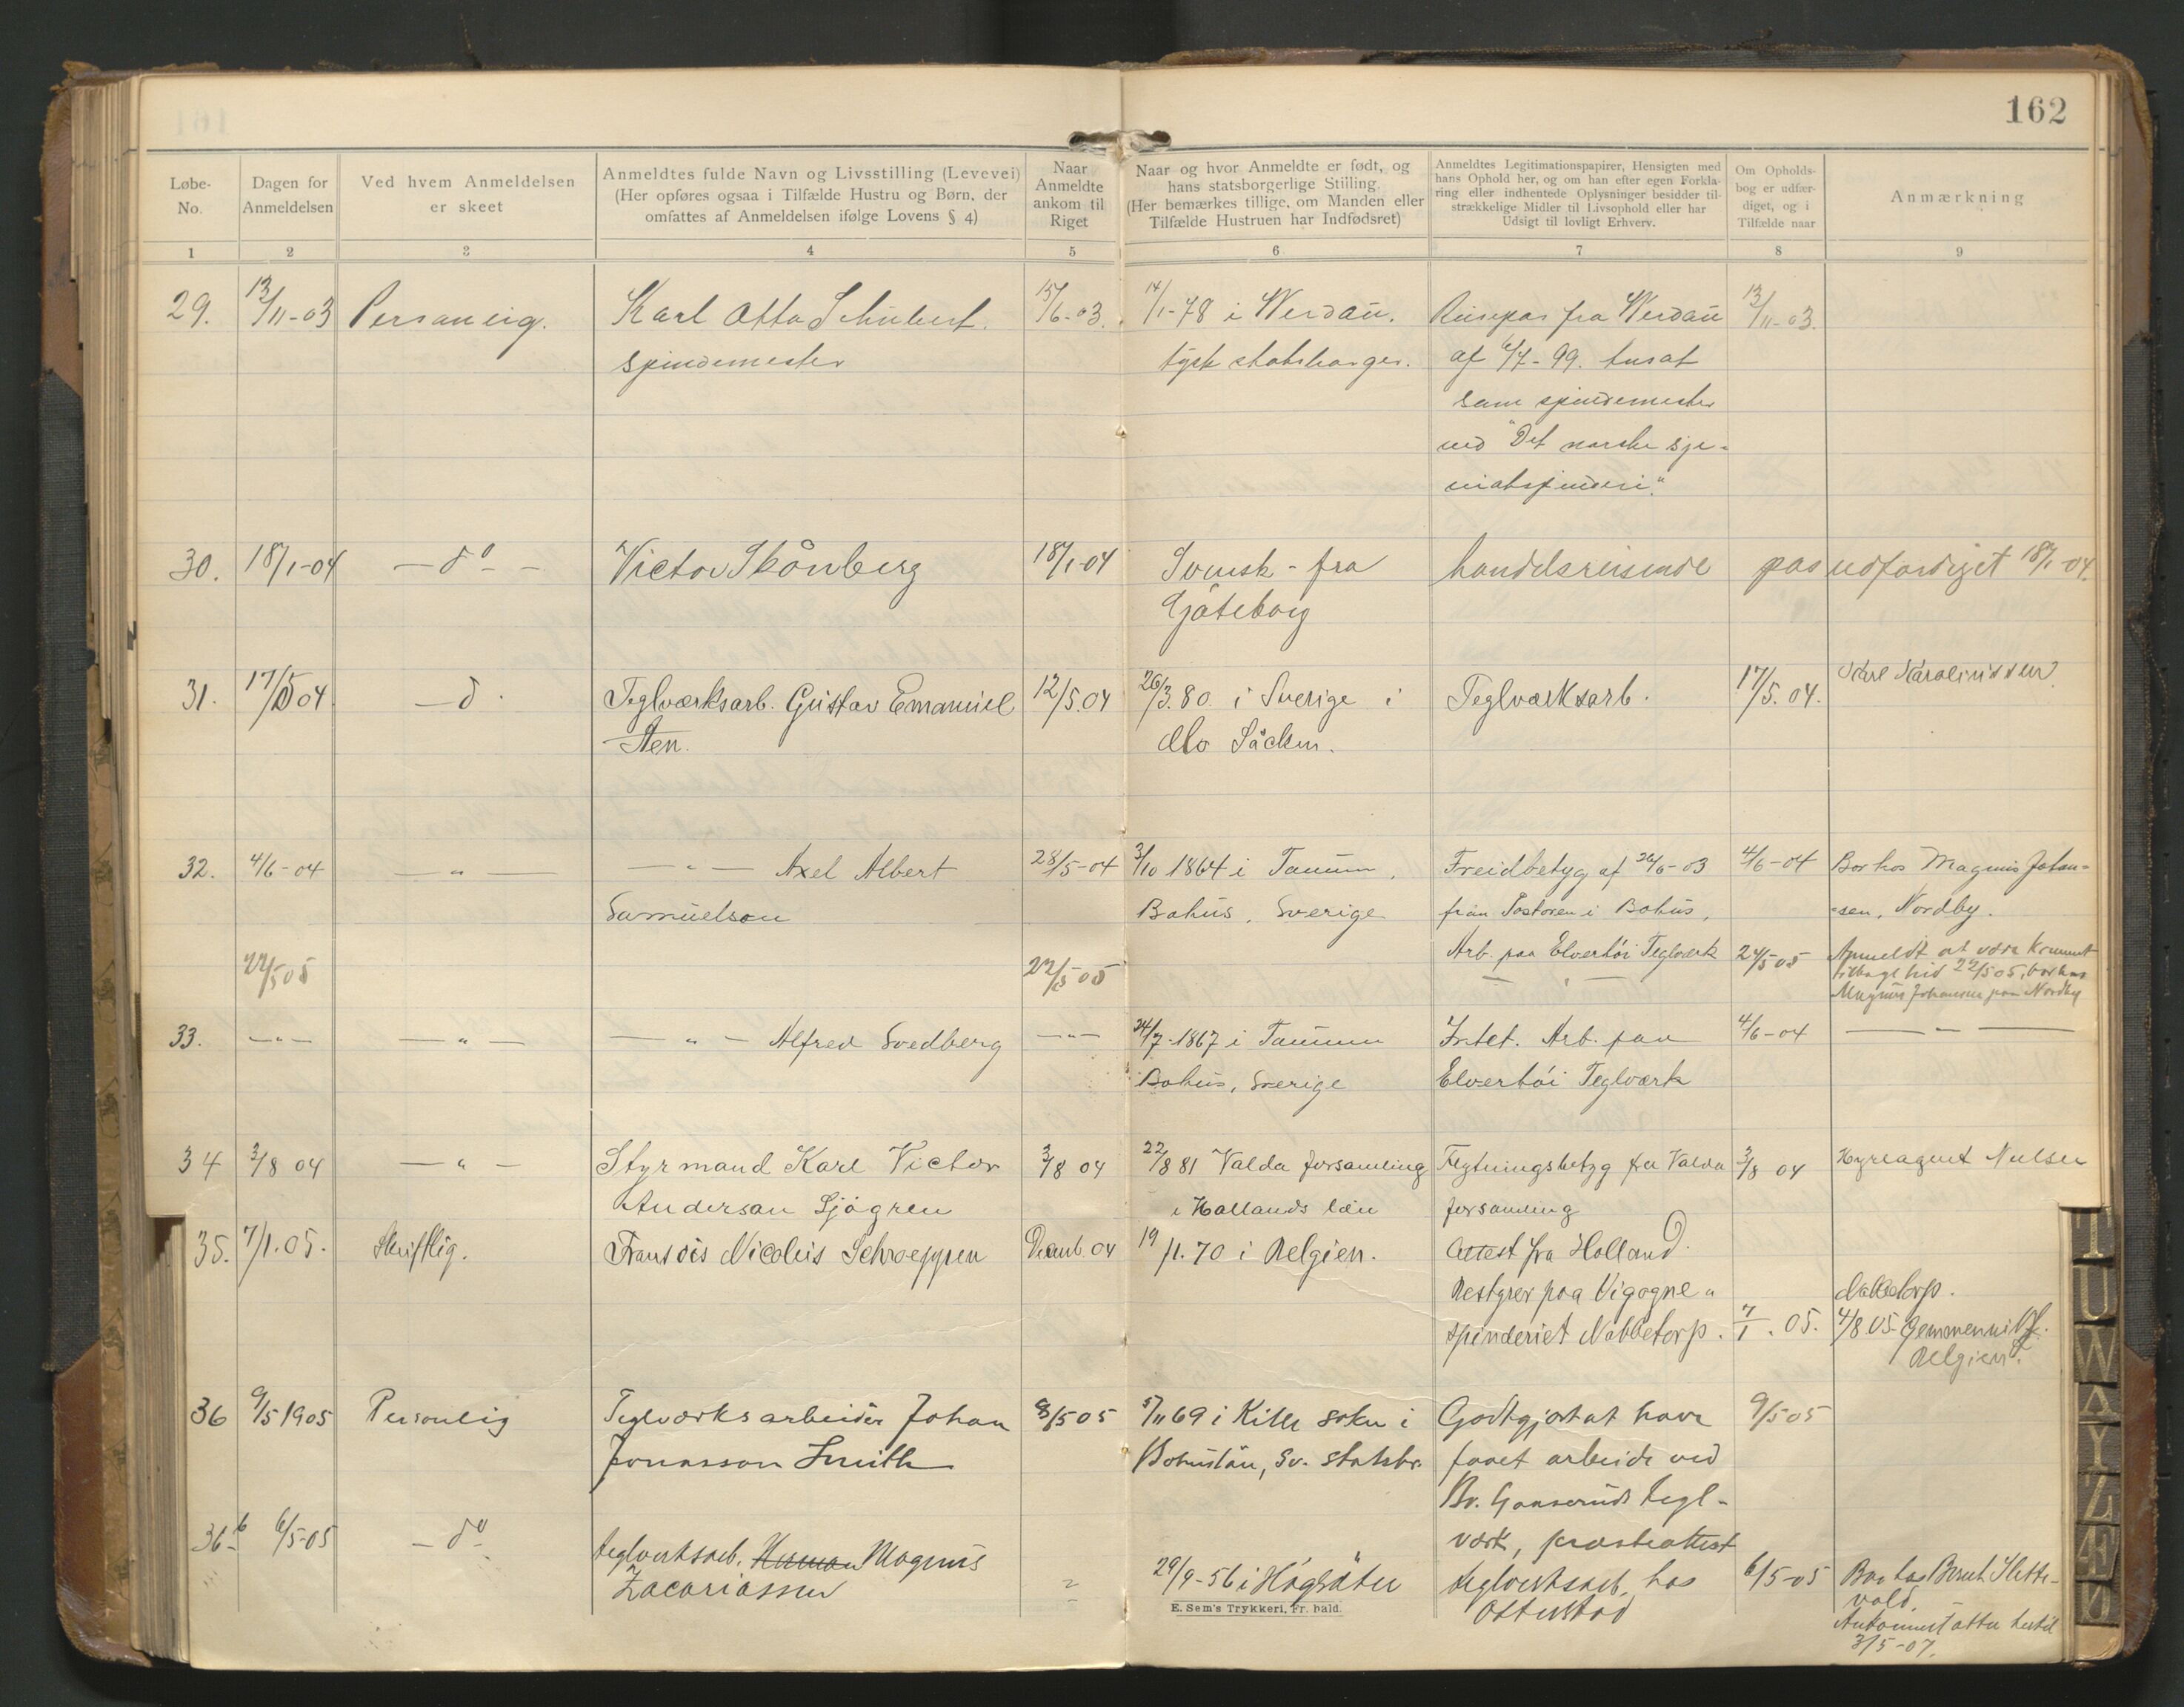 162
Løbe-No.
Dagen for Anmeldelsen
Ved hvem Anmeldelsen er skeet
Anmeldtes fulde Navn og Livsstilling (Levevei)
(Her opføres ogsaa i Tilfælde Hustru og Børn, der
omfattes af Anmeldelsen ifølge Lovens § 4)
Naar Anmeldte ankom til Riget
Naar og hvor Anmeldte er født, og
hans statsborgerlige Stilling.
(Her bemærkes tillige, om Manden eller
Tilfælde Hustruen har Indfødsret)
Anmeldtes Legitimationspapirer, Hensigten med
hans Ophold her, og om han efter egen Forkla-
ring eller indhentede Oplysninger besidder til-
strækkelige Midler til Livsophold eller har
Udsigt til lovligt Erhverv.
Om Opholds-
bog er udfær-
diget, og i
Tilfælde naar
Anmærkning
1 2 3 4 5 6 7 8 9
29. 13/11-03 Personlig. Karl Otto Schubert. 15/6-03. 14/1-78 i Werdau. Reisepas fra Werdau 13/11-03.
spindemester tysk statsborger. af 6/7-99. ansat
som spindemester
ved "Det norske
30. 18/1-04 - do - Victor Skönberg 18/1-04 Svensk - fra handelsreisende pas udfærdiget 18/1-04.
Göteborg
31. 17/5 04 - d. Teglværksarb. Gustav Emanuel 12/5.04 26/3.80 i Sverige i Teglværksarb. 17/5.04. Karl Karolinissen
Sten. Mo Säcken.
32. 4/6-04 — " — — " — Axel Albert 28/5-04 3/10 1864 i Tanum, Freidbetyg af 24/6-03 4/6-04 Bor hos Magnus Johan-
Samuelson Bohus, Sverige från Pastoren i Bohus, =sen, Nordby.
Arb. paa Elverhöi Teglværk
22/5 05 22/5 05 — " — 24/5 05 Anmeldt at være kommet
tilbage hid 22/5 05, bor hos
Magnus Johansen paa Nordby
33. — " — — " — — " — Alfred Svedberg — " — 24/7-1867 i Tanum Intet. Arb. paa 4/6-04 — " —
Bohus, Sverige Elverhöi Teglværk
34 3/8 04 — " — Styrmand Karl Victor 3/8 04 22/8 81 Valda forsamling Flytningsbetyg fra Valda 3/8 04 Hyreagent Nielsen
Anderson Sjögren i Hallands län forsamling
35. 7/1.05. Skriftlig. Fransois Nicolus Decmb. 04 19/1.70 i Belgien. Attest fra Holland.
Bestyrer paa Vigogne= Nabbetorp.
spinderiet Nabbetorp. 7/1.05. 4/8 05
Belgien.
36 9/5 1905 Personlig Teglværksarbeider Johan 8/5 05 5/11 69 i Kille sokn i Godtgjort at have 9/5 05
Jonasson Smith Bohuslän, Sv. statsbr. faaet arbeide ved
Br. Gansruds tegl-
værk, præsteattest
36b 6/5-05 - do - teglverksarb. Herman Magnus 29/9-56 i Högsäter teglverksarb. hos 6/5-05 Bor hos Bernt Slette-
Zacariassen " Ottestad vold.
Ankommet atter hertil
3/5-07.
E. Sem's Trykkeri, Fr. hald.
T
U
W
Y
Z
Æ
Ø